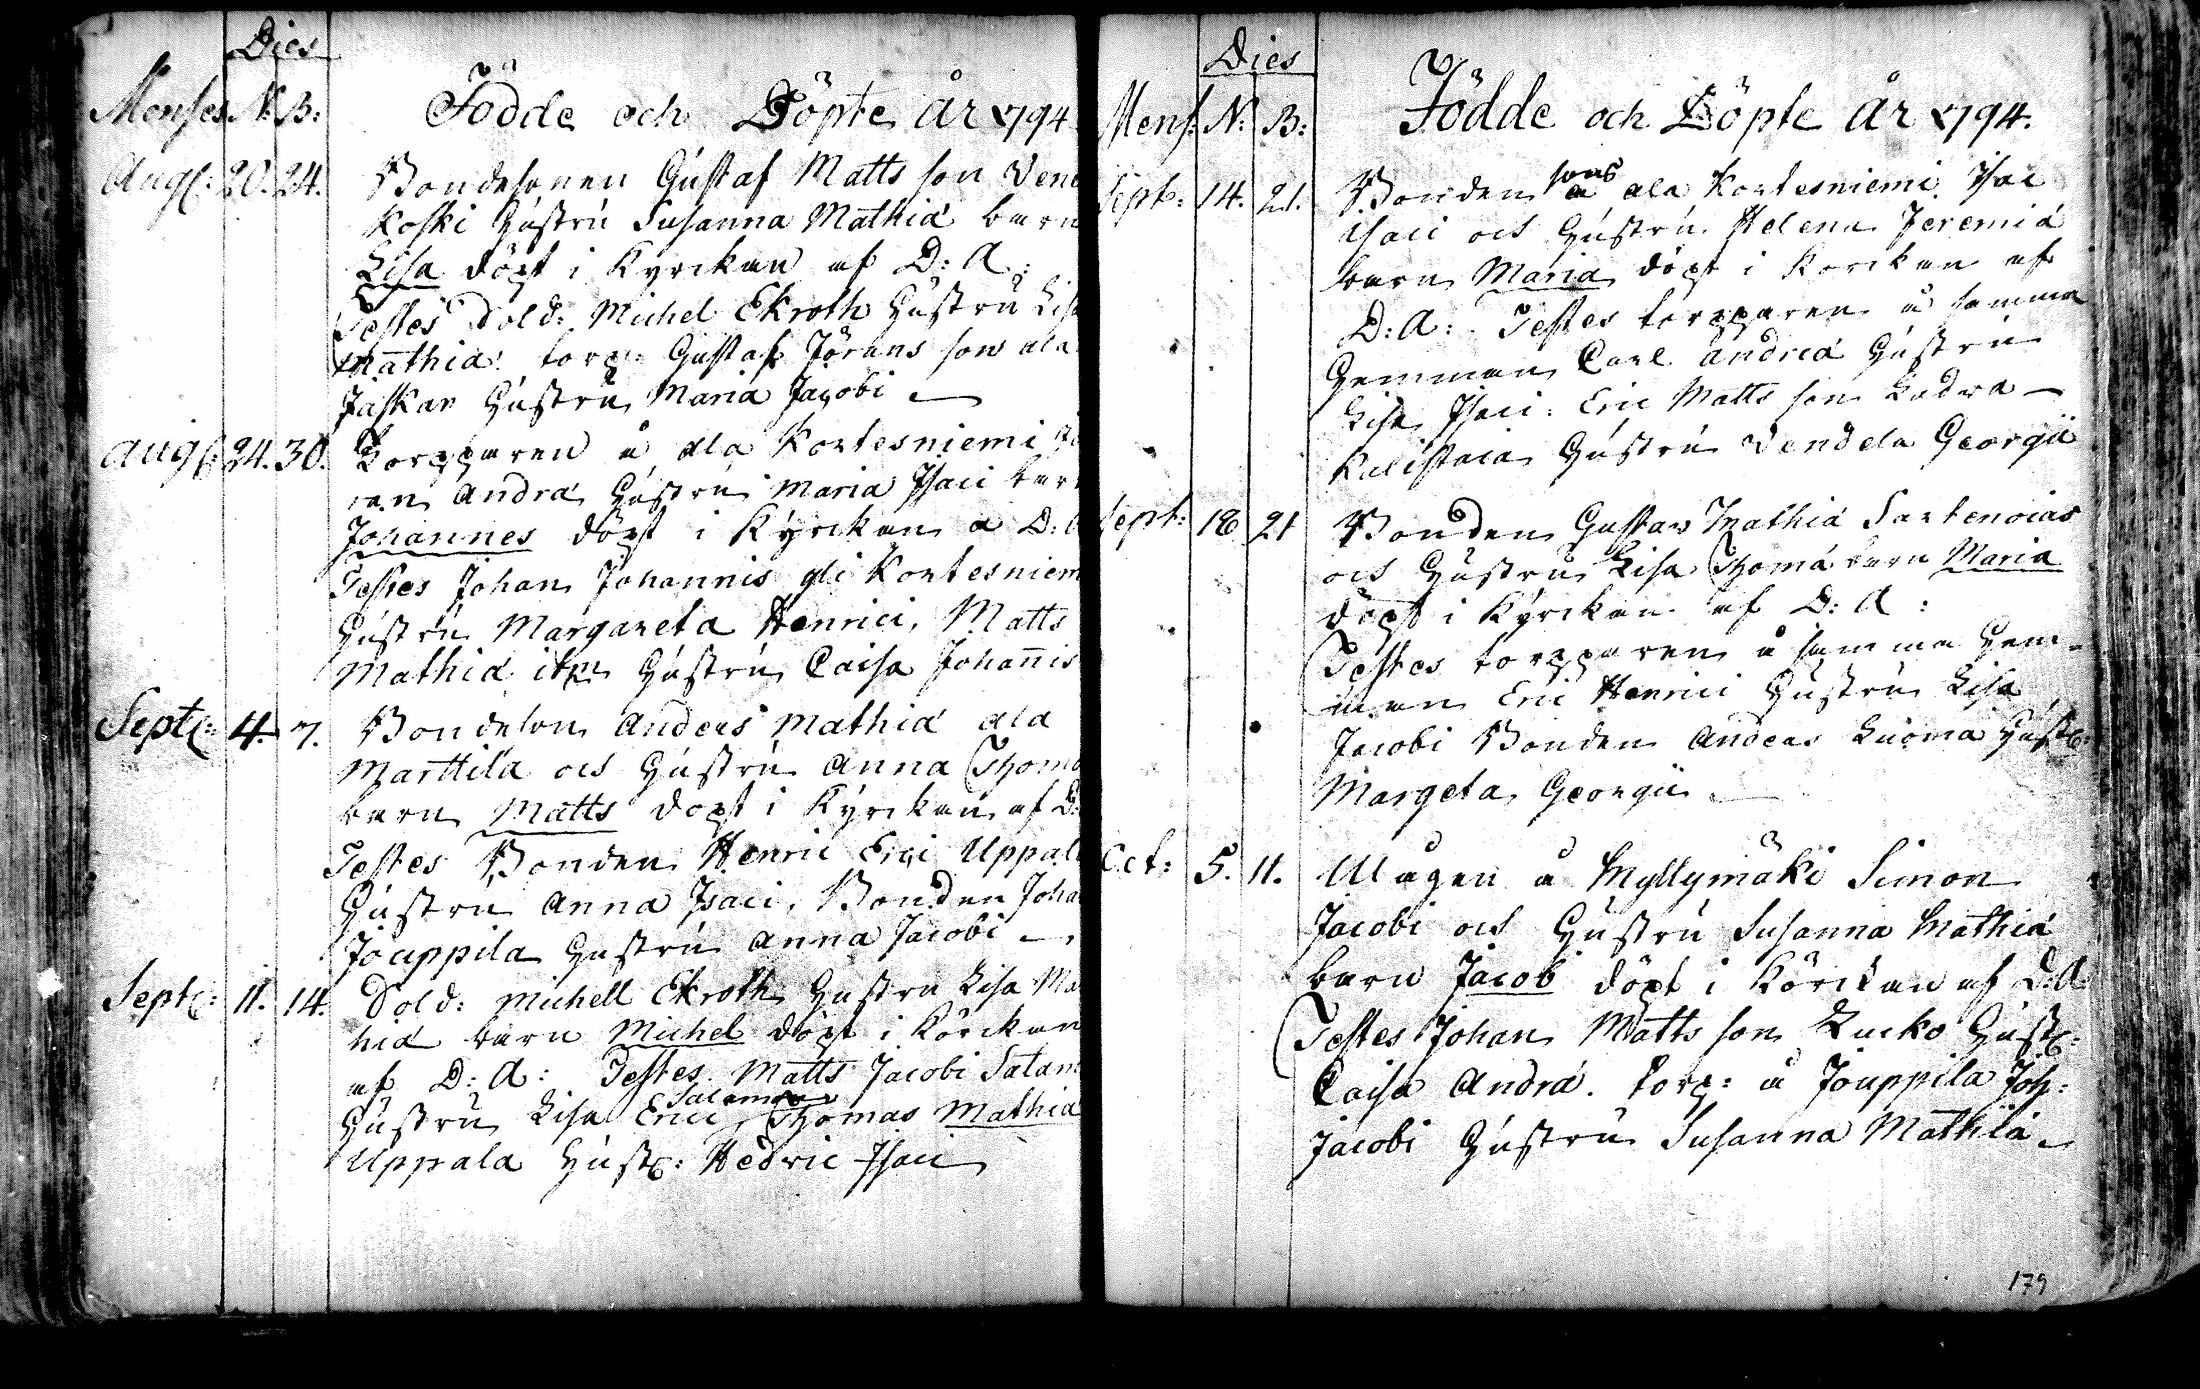 Dies
Menses N: B: Födde och Döpte År 1794
Aug: 20. 24. Bondesonen Gustaf Matts son Vene
koski Hustru Susanna Mathiæ barn
Lisa döpt i Kyrckan af D: A:
Testes Sold: Michel Ekroth Hustru Lisa
Mathiæ torp: Gustaf Jörans son ala
Jaskar Hustru Maria Jacobi
Aug: 24. 30. Torpparen å ala Kortesniemi Jö
ran Andræ Hustru Maria Isaci barn
Johannes döpt i Kyrckan a D: A
Testes Johan Johannis yli Kortesniem
Hustru Margareta Henrici, Matts
Mathiæ Hustru Caisa Johannis
Sept: 4. 7. Bondeson Anders Mathiæ ala
Marttila och Hustru Anna Thomæ
barn Matts döpt i Kyrckan af D:
Testes Bonden Henric Erici Uppala
Hustru Anna Isaci, Bonden Joha
Jouppila Hustru Anna Jacobi
Sept: 11. 14. Sold: Michell Ekroth Hustru Lisa Mat
hiæ barn Michel döpt i Körckan
af D: A: Testes Matts Jacobi
Hustru Lisa Erici Thomas Mathiæ
Uppala Hust: Hedvic Isaci
Dies
Mens: N: B: Födde och Döpte År 1794.
Sept: 14. 21. Bonden sons å ala Kortesniemi Isac
Isaci och Hustru Helena Jeremiæ
barn Maria döpt i Korckan af
D: A: Testes torpparen å samma
Hemman Carl Andreæ Hustru
Lisa Isaci: Eric Matts son
Hustru Vendela Georgii
Sept: 18 21 Bonden Gustav Mathiæ Sartenoias
och Hustru Lisa Thomæ barn Maria
döpt i Kyrckan af D: A:
Testes torpparen å samma Hem-
man Eric Henrici Hustru Lisa
Jacobi Bonden Andeas Luoma Hust:
Margeta Georgii
Oct: 5. 11. Mågen å Myllymäki Simon
Jacobi och Hustru Susanna Mathiæ
barn Jacob döpt i Körckan af D: A
Testes Johan Matts son Hust:
Caisa Andræ. torp: å Jouppila Joh:
Jacobi Hustru Susanna Mathiæ
179